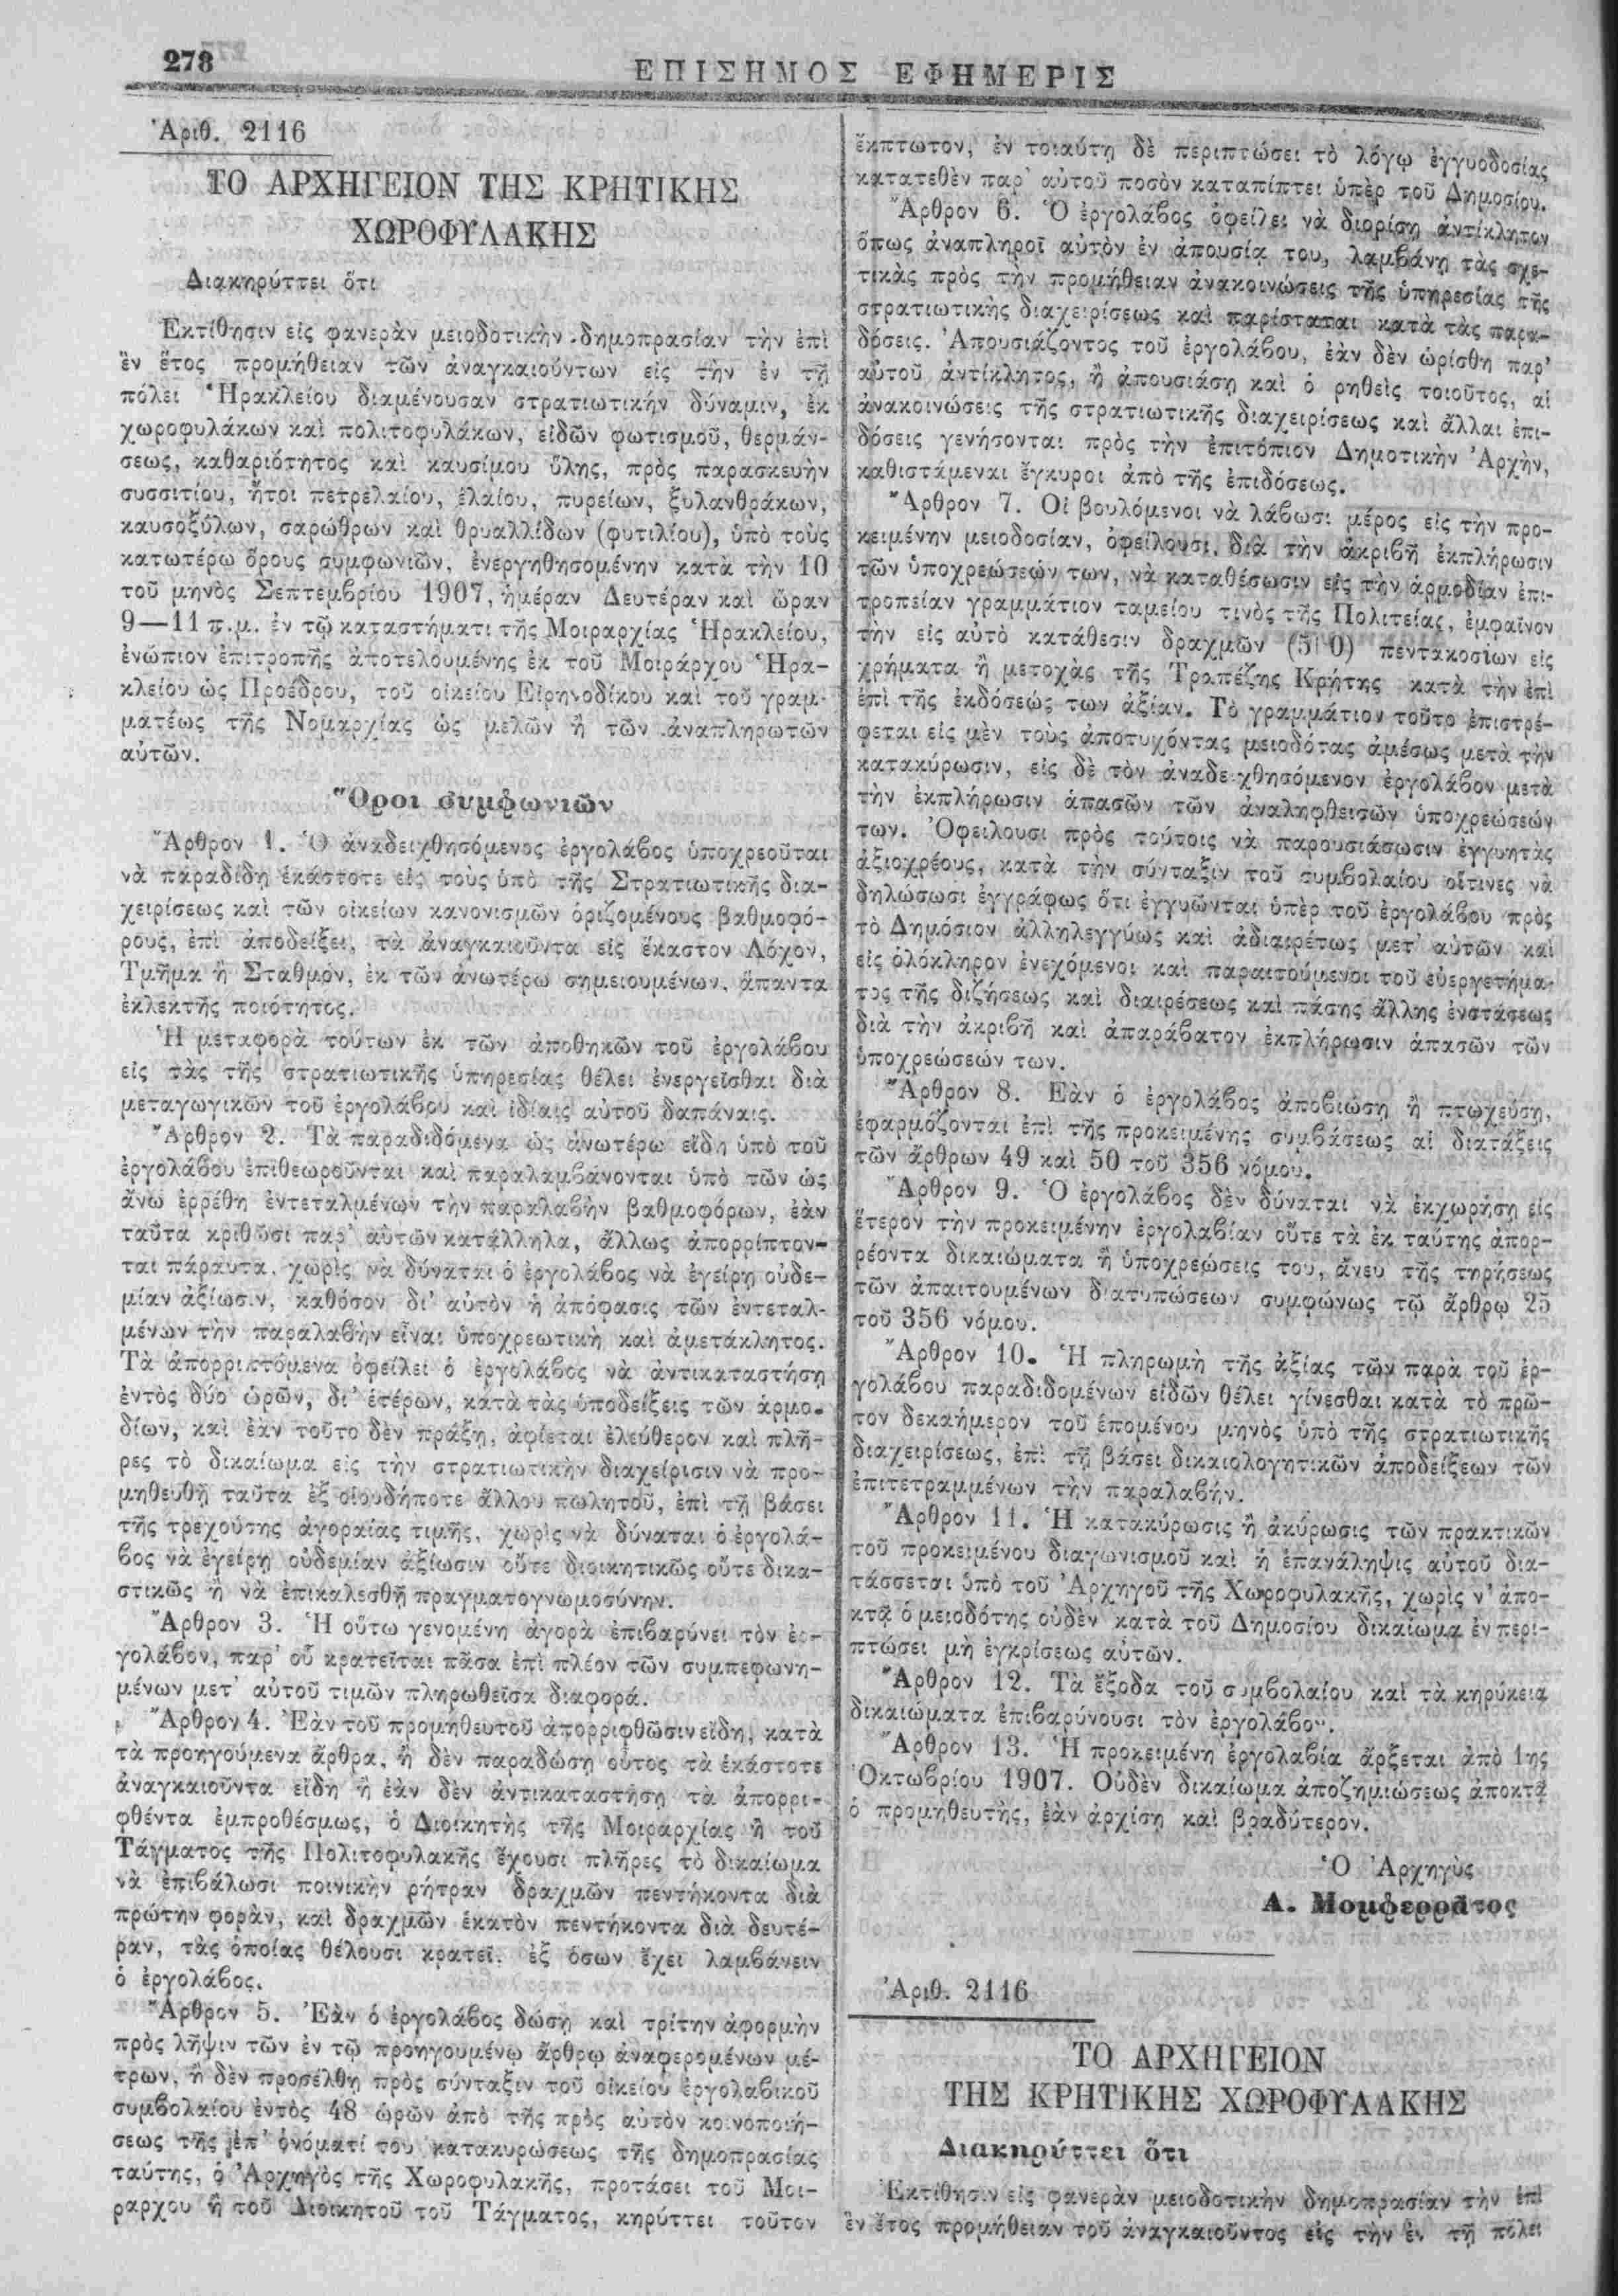 278
ΕΠΙΣΗΜΟΣ ΕΦΗΜΕΡΙΣ
Ἀριθ. 2116
ΤΟ ΑΡΧΗΓΕΙΟΝ ΤΗΣ ΚΡΗΤΙΚΗΣ
ΧΩΡΟΦΥΛΑΚΗΣ
Διακηρύττει ὅτι
Ἐκτίθησιν εἰς φανερὰν μειοδοτικὴν δημοπρασίαν τὴν ἐπὶ
ἓν ἔτος προμήθειαν τῶν ἀναγκαιούντων εἰς τὴν ἐν τῇ
πόλει Ἡρακλείου διαμένουσαν στρατιωτικήν δύναμιν, ἐκ
χωροφυλάκων καὶ πολιτοφυλάκων, εἰδῶν φωτισμοῦ, θερμάν-
σεως, καθαριότητος καὶ καυσίμου ὕλης, πρὸς παρασκευὴν
συσσιτίου, ἤτοι πετρελαίου, ἐλαίου, πυρείων, ξυλανθράκων,
καυσοξύλων, σαρώθρων καὶ θρυαλλίδων (φυτιλίου), ὑπὸ τοὺς
κατωτέρω ὅρους συμφωνιῶν, ἐνεργηθησομένην κατὰ τὴν 10
τοῦ μηνὸς Σεπτεμβρίου 1907, ἡμέραν Δευτέραν καὶ ὥραν
9—11 π.μ. ἐν τῷ καταστήματι τῆς Μοιραρχίας Ἡρακλείου,
ἐνώπιον ἐπιτροπῆς ἀποτελουμένης ἐκ τοῦ Μοιράρχου Ἡρα-
κλείου ὡς Προέδρου, τοῦ οἰκείου Εἰρηνοδίκου καὶ τοῦ γραμ-
ματέως τῆς Νομαρχίας ὡς μελῶν ἢ τῶν ἀναπληρωτῶν
αὐτῶν.
Ὅροι συμφωνιῶν
Ἄρθρον 1. Ὁ ἀναδειχθησόμενος ἐργολάβος ὑποχρεοῦται
νὰ παραδίδῃ ἑκάστοτε εἰς τοὺς ὑπὸ τῆς Στρατιωτικῆς δια-
χειρίσεως καὶ τῶν οἰκείων κανονισμῶν ὁριζομένους βαθμοφό-
ρους, ἐπὶ ἀποδείξει, τὰ ἀναγκαιοῦντα εἰς ἕκαστον Λόχον,
Τμῆμα ἢ Σταθμόν, ἐκ τῶν ἀνωτέρω σημειουμένων, ἅπαντα
ἐκλεκτῆς ποιότητος.
Ἡ μεταφορὰ τούτων ἐκ τῶν ἀποθηκῶν τοῦ ἐργολάβου
εἰς τὰς τῆς στρατιωτικῆς ὑπηρεσίας θέλει ἐνεργεῖσθαι διὰ
μεταγωγικῶν τοῦ ἐργολάβου καὶ ἰδίαις αὐτοῦ δαπάναις.
Ἄρθρον 2. Τὰ παραδιδόμενα ὡς ἀνωτέρω εἴδη ὑπὸ τοῦ
ἐργολάβου ἐπιθεωροῦνται καὶ παραλαμβάνονται ὑπὸ τῶν ὡς
ἄνω ἐρρέθη ἐντεταλμένων τὴν παραλαβὴν βαθμοφόρων, ἐὰν
ταῦτα κριθῶσι παρ' αὐτῶν κατάλληλα, ἄλλως ἀπορρίπτον-
ται πάραυτα, χωρὶς νὰ δύναται ὁ ἐργολάβος νὰ ἐγείρῃ οὐδε-
μίαν ἀξίωσιν, καθόσον δι' αὐτὸν ἡ ἀπόφασις τῶν ἐντεταλ-
μένων τὴν παραλαβὴν εἶναι ὑποχρεωτικὴ καὶ ἀμετάκλητος.
Τὰ ἀπορριπτόμενα ὀφείλει ὁ ἐργολάβος νὰ ἀντικαταστήσῃ
ἐντὸς δύο ὡρῶν, δι' ἑτέρων, κατὰ τὰς ὑποδείξεις τῶν ἁρμο-
δίων, καὶ ἐὰν τοῦτο δὲν πράξῃ, ἀφίεται ἐλεύθερον καὶ πλῆ-
ρες τὸ δικαίωμα εἰς τὴν στρατιωτικὴν διαχείρισιν νὰ προ-
μηθευθῇ ταῦτα ἐξ οἱουδήποτε ἄλλου πωλητοῦ, ἐπὶ τῇ βάσει
τῆς τρεχούσης ἀγοραίας τιμῆς, χωρὶς νὰ δύναται ὁ ἐργολά-
βος νὰ ἐγείρῃ οὐδεμίαν ἀξίωσιν οὔτε διοικητικῶς οὔτε δικα-
στικῶς ἢ νὰ ἐπικαλεσθῇ πραγματογνωμοσύνην.
Ἄρθρον 3. Ἡ οὕτω γενομένη ἀγορὰ ἐπιβαρύνει τὸν ἐρ-
γολάβον, παρ' οὗ κρατεῖται πᾶσα ἐπὶ πλέον τῶν συμπεφωνη-
μένων μετ' αὐτοῦ τιμῶν πληρωθεῖσα διαφορά.
Ἄρθρον 4. Ἐὰν τοῦ προμηθευτοῦ ἀπορριφθῶσιν εἴδη, κατὰ
τὰ προηγούμενα ἄρθρα, ἢ δὲν παραδώσῃ οὗτος τὰ ἑκάστοτε
ἀναγκαιοῦντα εἴδη ἢ ἐὰν δὲν ἀντικαταστήσῃ τὰ ἀπορρι-
φθέντα ἐμπροθέσμως, ὁ Διοικητὴς τῆς Μοιραρχίας ἢ τοῦ
Τάγματος τῆς Πολιτοφυλακῆς ἔχουσι πλῆρες τὸ δικαίωμα
νὰ ἐπιβάλωσι ποινικὴν ρήτραν δραχμῶν πεντήκοντα διὰ
πρώτην φοράν, καὶ δραχμῶν ἑκατὸν πεντήκοντα διὰ δευτέ-
ραν, τὰς ὁποίας θέλουσι κρατεῖ, ἐξ ὅσων ἔχει λαμβάνειν
ὁ ἐργολάβος.
Ἄρθρον 5. Ἐὰν ὁ ἐργολάβος δώσῃ καὶ τρίτην ἀφορμὴν
πρὸς λῆψιν τῶν ἐν τῷ προηγουμένῳ ἄρθρῳ ἀναφερομένων μέ-
τρων, ἢ δὲν προσέλθῃ πρὸς σύνταξιν τοῦ οἰκείου ἐργολαβικοῦ
συμβολαίου ἐντὸς 48 ὡρῶν ἀπὸ τῆς πρὸς αὐτὸν κοινοποιή-
σεως τῆς ἐπ' ὀνόματί του κατακυρώσεως τῆς δημοπρασίας
ταύτης, ὁ Ἀρχηγὸς τῆς Χωροφυλακῆς, προτάσει τοῦ Μοι-
ραρχου ἢ τοῦ Διοικητοῦ τοῦ Τάγματος, κηρύττει τοῦτον
ἔκπτωτον, ἐν τοιαύτῃ δὲ περιπτώσει τὸ λόγῳ ἐγγυοδοσίας
κατατεθὲν παρ' αὐτοῦ ποσὸν καταπίπτει ὑπὲρ τοῦ Δημοσίου.
Ἄρθρον 6. Ὁ ἐργολάβος ὀφείλει νὰ διορίσῃ ἀντίκλητον
ὅπως ἀναπληροῖ αὐτὸν ἐν ἀπουσίᾳ του, λαμβάνῃ τὰς σχε-
τικὰς πρὸς τὴν προμήθειαν ἀνακοινώσεις τῆς ὑπηρεσίας τῆς
στρατιωτικῆς διαχειρίσεως καὶ παρίσταται κατὰ τὰς παρα-
δόσεις. Ἀπουσιάζοντος τοῦ ἐργολάβου, ἐὰν δὲν ὡρίσθη παρ'
αὐτοῦ ἀντίκλητος, ἢ ἀπουσιάσῃ καὶ ὁ ρηθεὶς τοιοῦτος, αἱ
ἀνακοινώσεις τῆς στρατιωτικῆς διαχειρίσεως καὶ ἄλλαι ἐπι-
δόσεις γενήσονται πρὸς τὴν ἐπιτόπιον Δημοτικὴν Ἀρχὴν,
καθιστάμεναι ἔγκυροι ἀπὸ τῆς ἐπιδόσεως.
Ἄρθρον 7. Οἱ βουλόμενοι νὰ λάβωσι μέρος εἰς τὴν προ-
κειμένην μειοδοσίαν, ὀφείλουσι, διὰ τὴν ἀκριβῆ ἐκπλήρωσιν
τῶν ὑποχρεώσεών των, νὰ καταθέσωσιν εἰς τὴν ἁρμοδίαν ἐπι-
τροπείαν γραμμάτιον ταμείου τινὸς τῆς Πολιτείας, ἐμφαῖνον
τὴν εἰς αὐτὸ κατάθεσιν δραχμῶν (500) πεντακοσίων εἰς
χρήματα ἢ μετοχὰς τῆς Τραπέζης Κρήτης κατὰ τὴν ἐπὶ
ἐπὶ τῆς ἐκδόσεώς των ἀξίαν. Τὸ γραμμάτιον τοῦτο ἐπιστρέ-
φεται εἰς μὲν τοὺς ἀποτυχόντας μειοδότας ἀμέσως μετὰ τὴν
κατακύρωσιν, εἰς δὲ τὸν ἀναδειχθησόμενον ἐργολάβον μετὰ
τὴν ἐκπλήρωσιν ἁπασῶν τῶν ἀναληφθεισῶν ὑποχρεώσεών
των. Ὀφείλουσι πρὸς τούτοις νὰ παρουσιάσωσιν ἐγγυητὰς
ἀξιοχρέους, κατὰ τὴν σύνταξιν τοῦ συμβολαίου οἵτινες νὰ
δηλώσωσι ἐγγράφως ὅτι ἐγγυῶνται ὑπὲρ τοῦ ἐργολάβου πρὸς
τὸ Δημόσιον ἀλληλεγγύως καὶ ἀδιαιρέτως μετ' αὐτῶν καὶ
εἰς ὁλόκληρον ἐνεχόμενοι καὶ παραιτούμενοι τοῦ εὐεργετήμα-
τος τῆς διζήσεως καὶ διαιρέσεως καὶ πάσης ἄλλης ἐνστάσεως
διὰ τὴν ἀκριβῆ καὶ ἀπαράβατον ἐκπλήρωσιν ἁπασῶν τῶν
ὑποχρεώσεών των.
Ἄρθρον 8. Ἐὰν ὁ ἐργολάβος ἀποβιώσῃ ἢ πτωχεύσῃ,
ἐφαρμόζονται ἐπὶ τῆς προκειμένης συμβάσεως αἱ διατάξεις
τῶν ἄρθρων 49 καὶ 50 τοῦ 356 νόμου.
Ἄρθρον 9. Ὁ ἐργολάβος δὲν δύναται νὰ ἐκχωρήσῃ εἰς
ἕτερον τὴν προκειμένην ἐργολαβίαν οὔτε τὰ ἐκ ταύτης ἀπορ-
ρέοντα δικαιώματα ἢ ὑποχρεώσεις του, ἄνευ τῆς τηρήσεως
τῶν ἀπαιτουμένων διατυπώσεων συμφώνως τῷ ἄρθρῳ 25
τοῦ 356 νόμου.
Ἄρθρον 10. Ἡ πληρωμὴ τῆς ἀξίας τῶν παρὰ τοῦ ἐρ-
γολάβου παραδιδομένων εἰδῶν θέλει γίνεσθαι κατὰ τὸ πρῶ-
τον δεκαήμερον τοῦ ἑπομένου μηνὸς ὑπὸ τῆς στρατιωτικῆς
διαχειρίσεως, ἐπὶ τῇ βάσει δικαιολογητικῶν ἀποδείξεων τῶν
ἐπιτετραμμένων τὴν παραλαβήν.
Ἄρθρον 11. Ἡ κατακύρωσις ἢ ἀκύρωσις τῶν πρακτικῶν
τοῦ προκειμένου διαγωνισμοῦ καὶ ἡ ἐπανάληψις αὐτοῦ δια-
τάσσεται ὑπὸ τοῦ Ἀρχηγοῦ τῆς Χωροφυλακῆς, χωρὶς ν' ἀπο-
κτᾷ ὁ μειοδότης οὐδὲν κατὰ τοῦ Δημοσίου δικαίωμα ἐν περι-
πτώσει μὴ ἐγκρίσεως αὐτῶν.
Ἄρθρον 12. Τὰ ἔξοδα τοῦ συμβολαίου καὶ τὰ κηρύκεια
δικαιώματα ἐπιβαρύνουσι τὸν ἐργολάβον.
Ἄρθρον 13. Ἡ προκειμένη ἐργολαβία ἄρξεται ἀπὸ 1ης
Ὀκτωβρίου 1907. Οὐδὲν δικαίωμα ἀποζημιώσεως ἀποκτᾷ
ὁ προμηθευτὴς, ἐὰν ἀρχίσῃ καὶ βραδύτερον.
Ὁ Ἀρχηγὸς
Α. Μομφερρᾶτος
Ἀριθ. 2116
ΤΟ ΑΡΧΗΓΕΙΟΝ
ΤΗΣ ΚΡΗΤΙΚΗΣ ΧΩΡΟΦΥΛΑΚΗΣ
Διακηρύττει ὅτι
Ἐκτίθησιν εἰς φανερὰν μειοδοτικὴν δημοπρασίαν τὴν ἐπὶ
ἓν ἔτος προμήθειαν τοῦ ἀναγκαιοῦντος εἰς τὴν ἐν τῇ πόλει